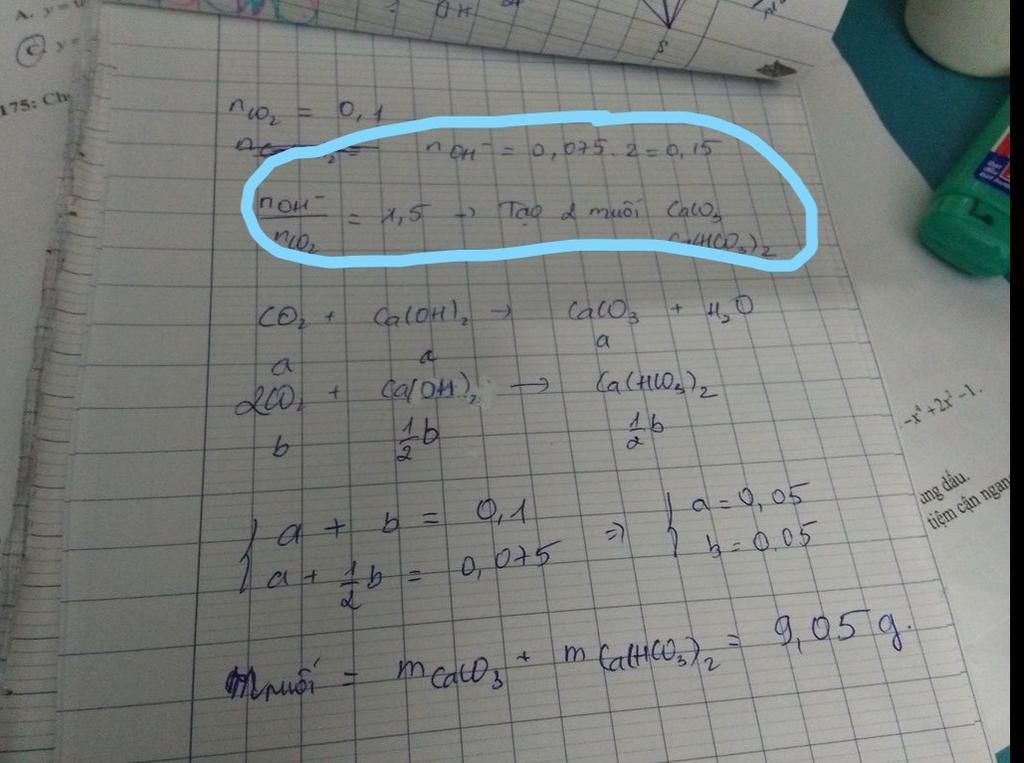 A. y =
C. y =
175: Ch
nCO₂ = 0,1
nOH⁻ = 0,075 . 2 = 0,15
nOH⁻/nCO₂ = 1,5 → Tạo 2 muối CaCO₃
Ca(HCO₃)₂
CO₂ + Ca(OH)₂ → CaCO₃ + H₂O
a a a
2CO₂ + Ca(OH)₂ → Ca(HCO₃)₂
b 1/2 b 1/2 b
{ a + b = 0,1 ⇒ { a = 0,05
a + 1/2 b = 0,075 b = 0,05
m muối = mCaCO₃ + mCa(HCO₃)₂ = 9,05 g.
-x⁴ + 2x² - 1.
ung dấu.
tiệm cận ngan